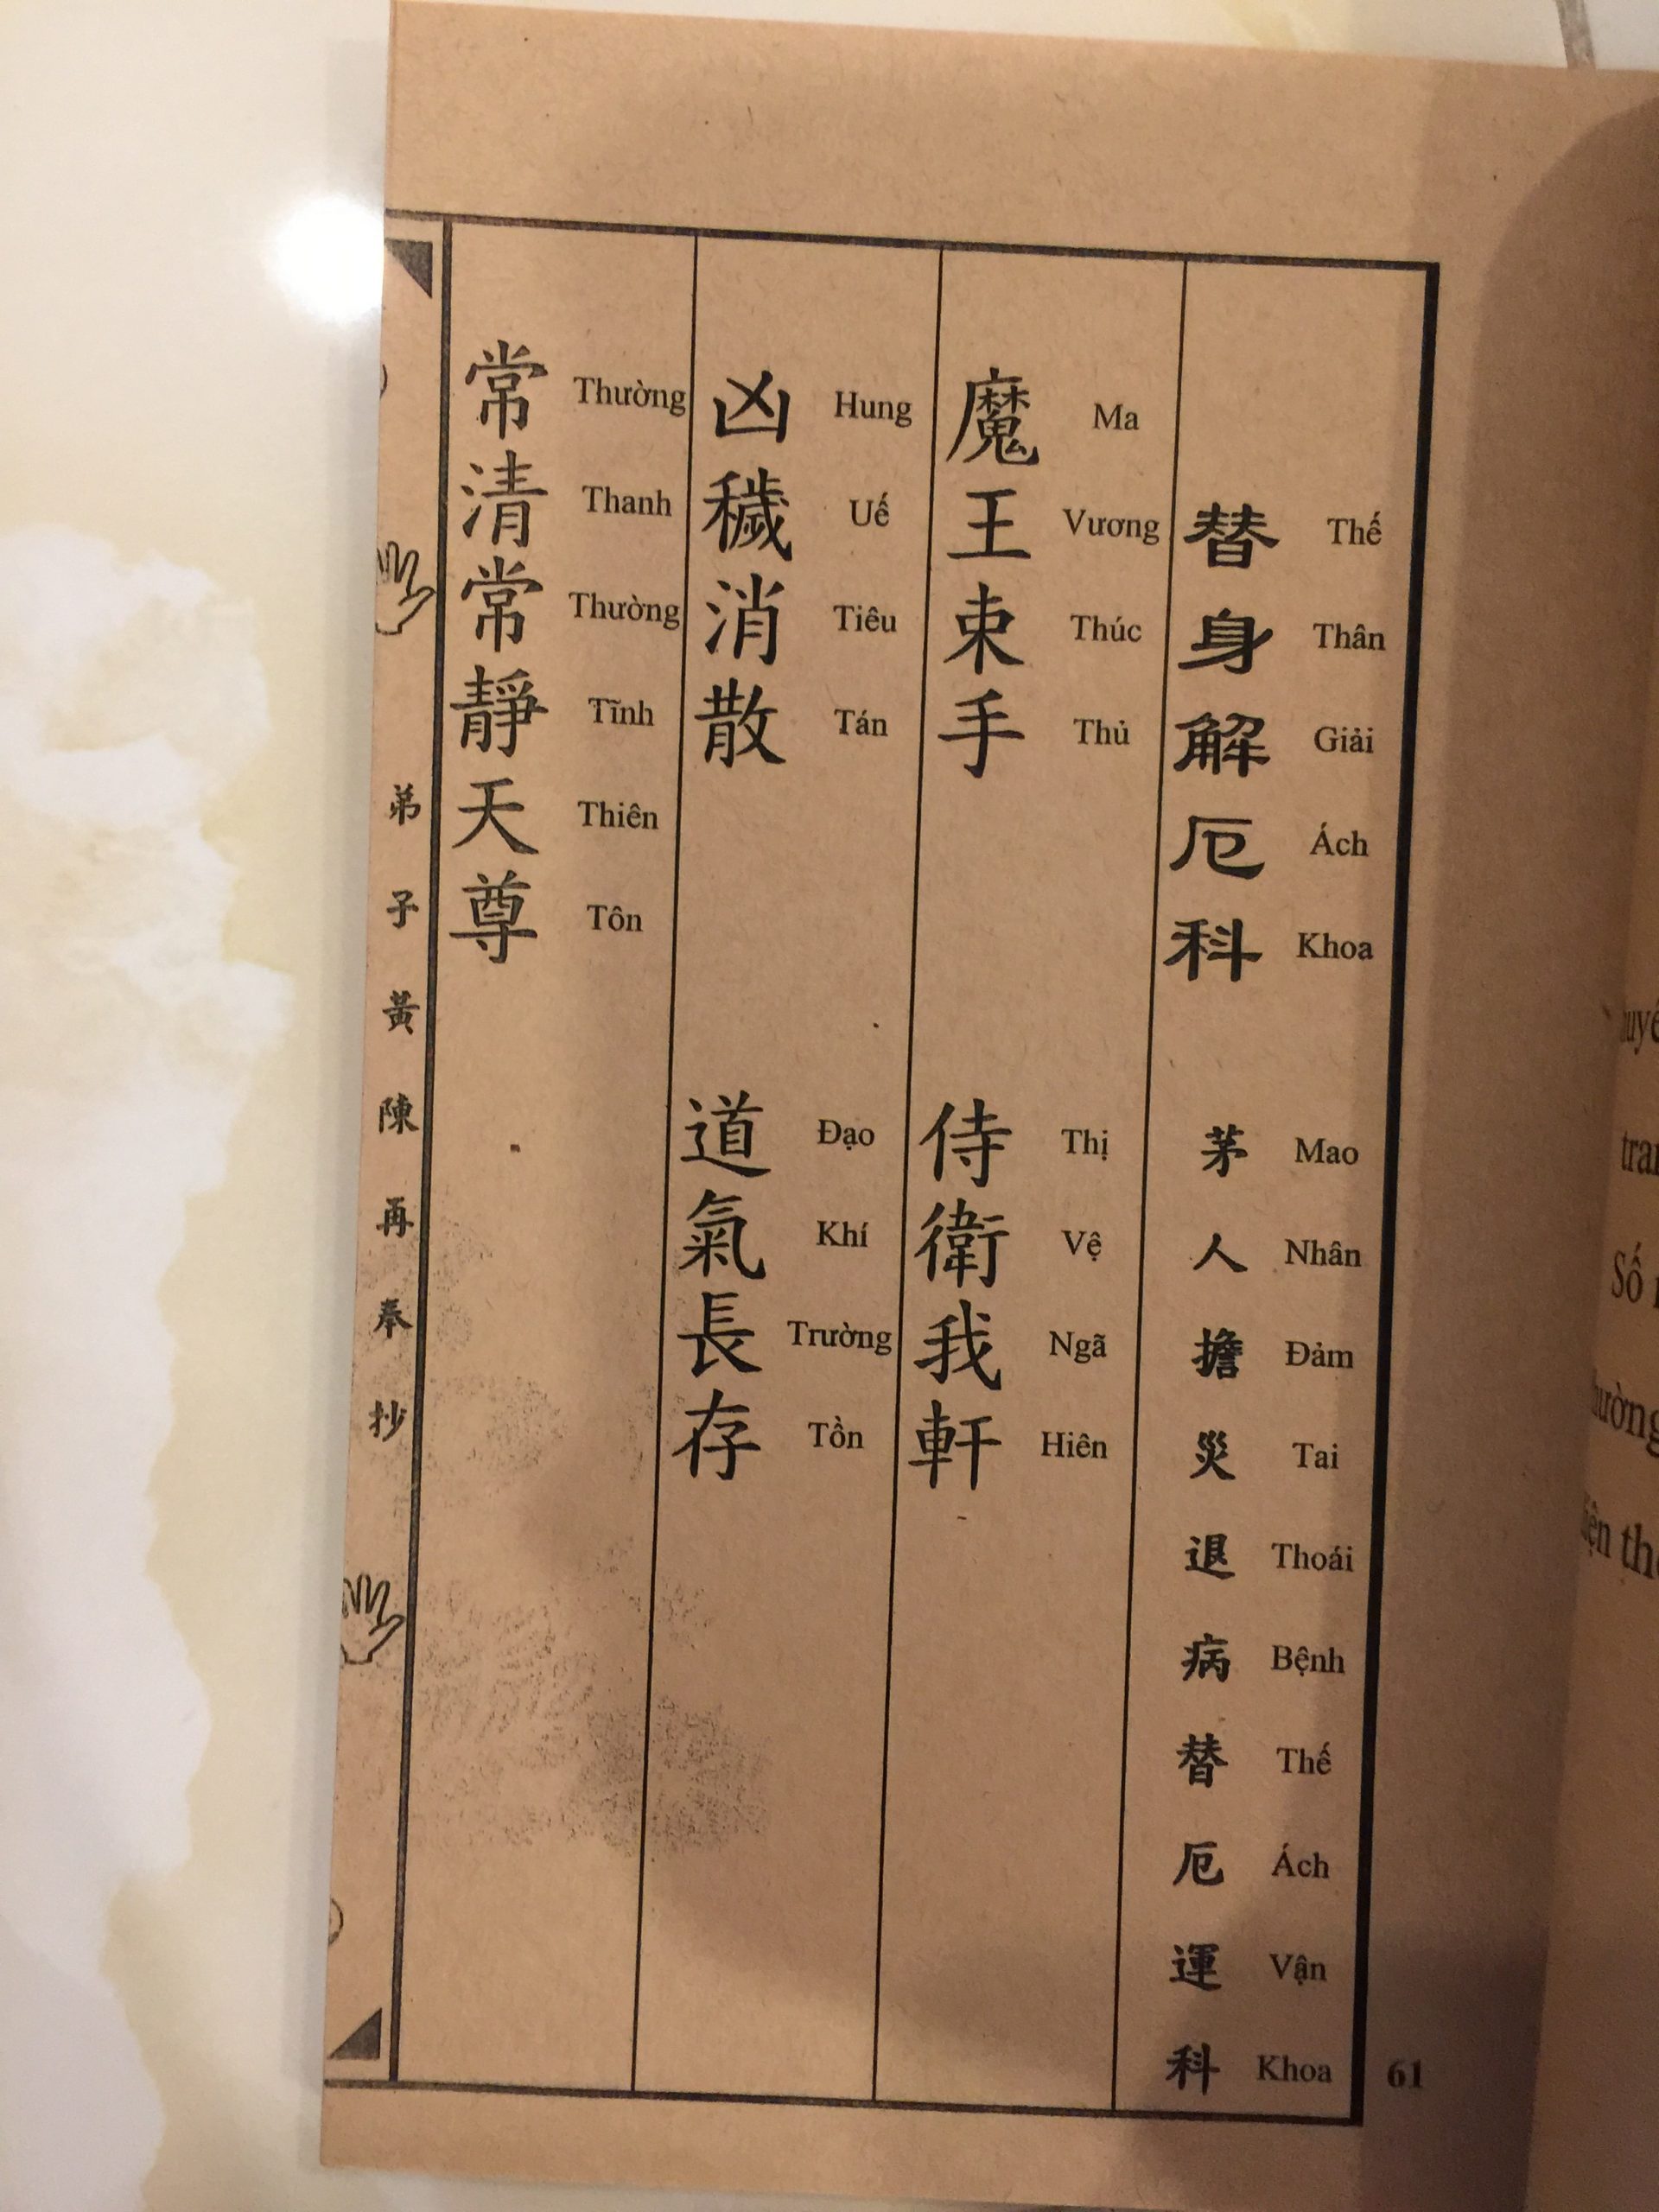 替 Thế 身 Thân 解 Giải 厄 Ách 科 Khoa
茅 Mao 人 Nhân 擔 Đảm 災 Tai 退 Thoái 病 Bệnh 替 Thế 厄 Ách 運 Vận 科 Khoa
魔 Ma 王 Vương 束 Thúc 手 Thủ
侍 Thị 衛 Vệ 我 Ngã 軒 Hiên
凶 Hung 穢 Uế 消 Tiêu 散 Tán
道 Đạo 氣 Khí 長 Trường 存 Tồn
常 Thường 清 Thanh 常 Thường 靜 Tĩnh 天 Thiên 尊 Tôn
弟子黃陳再奉抄
61
Số